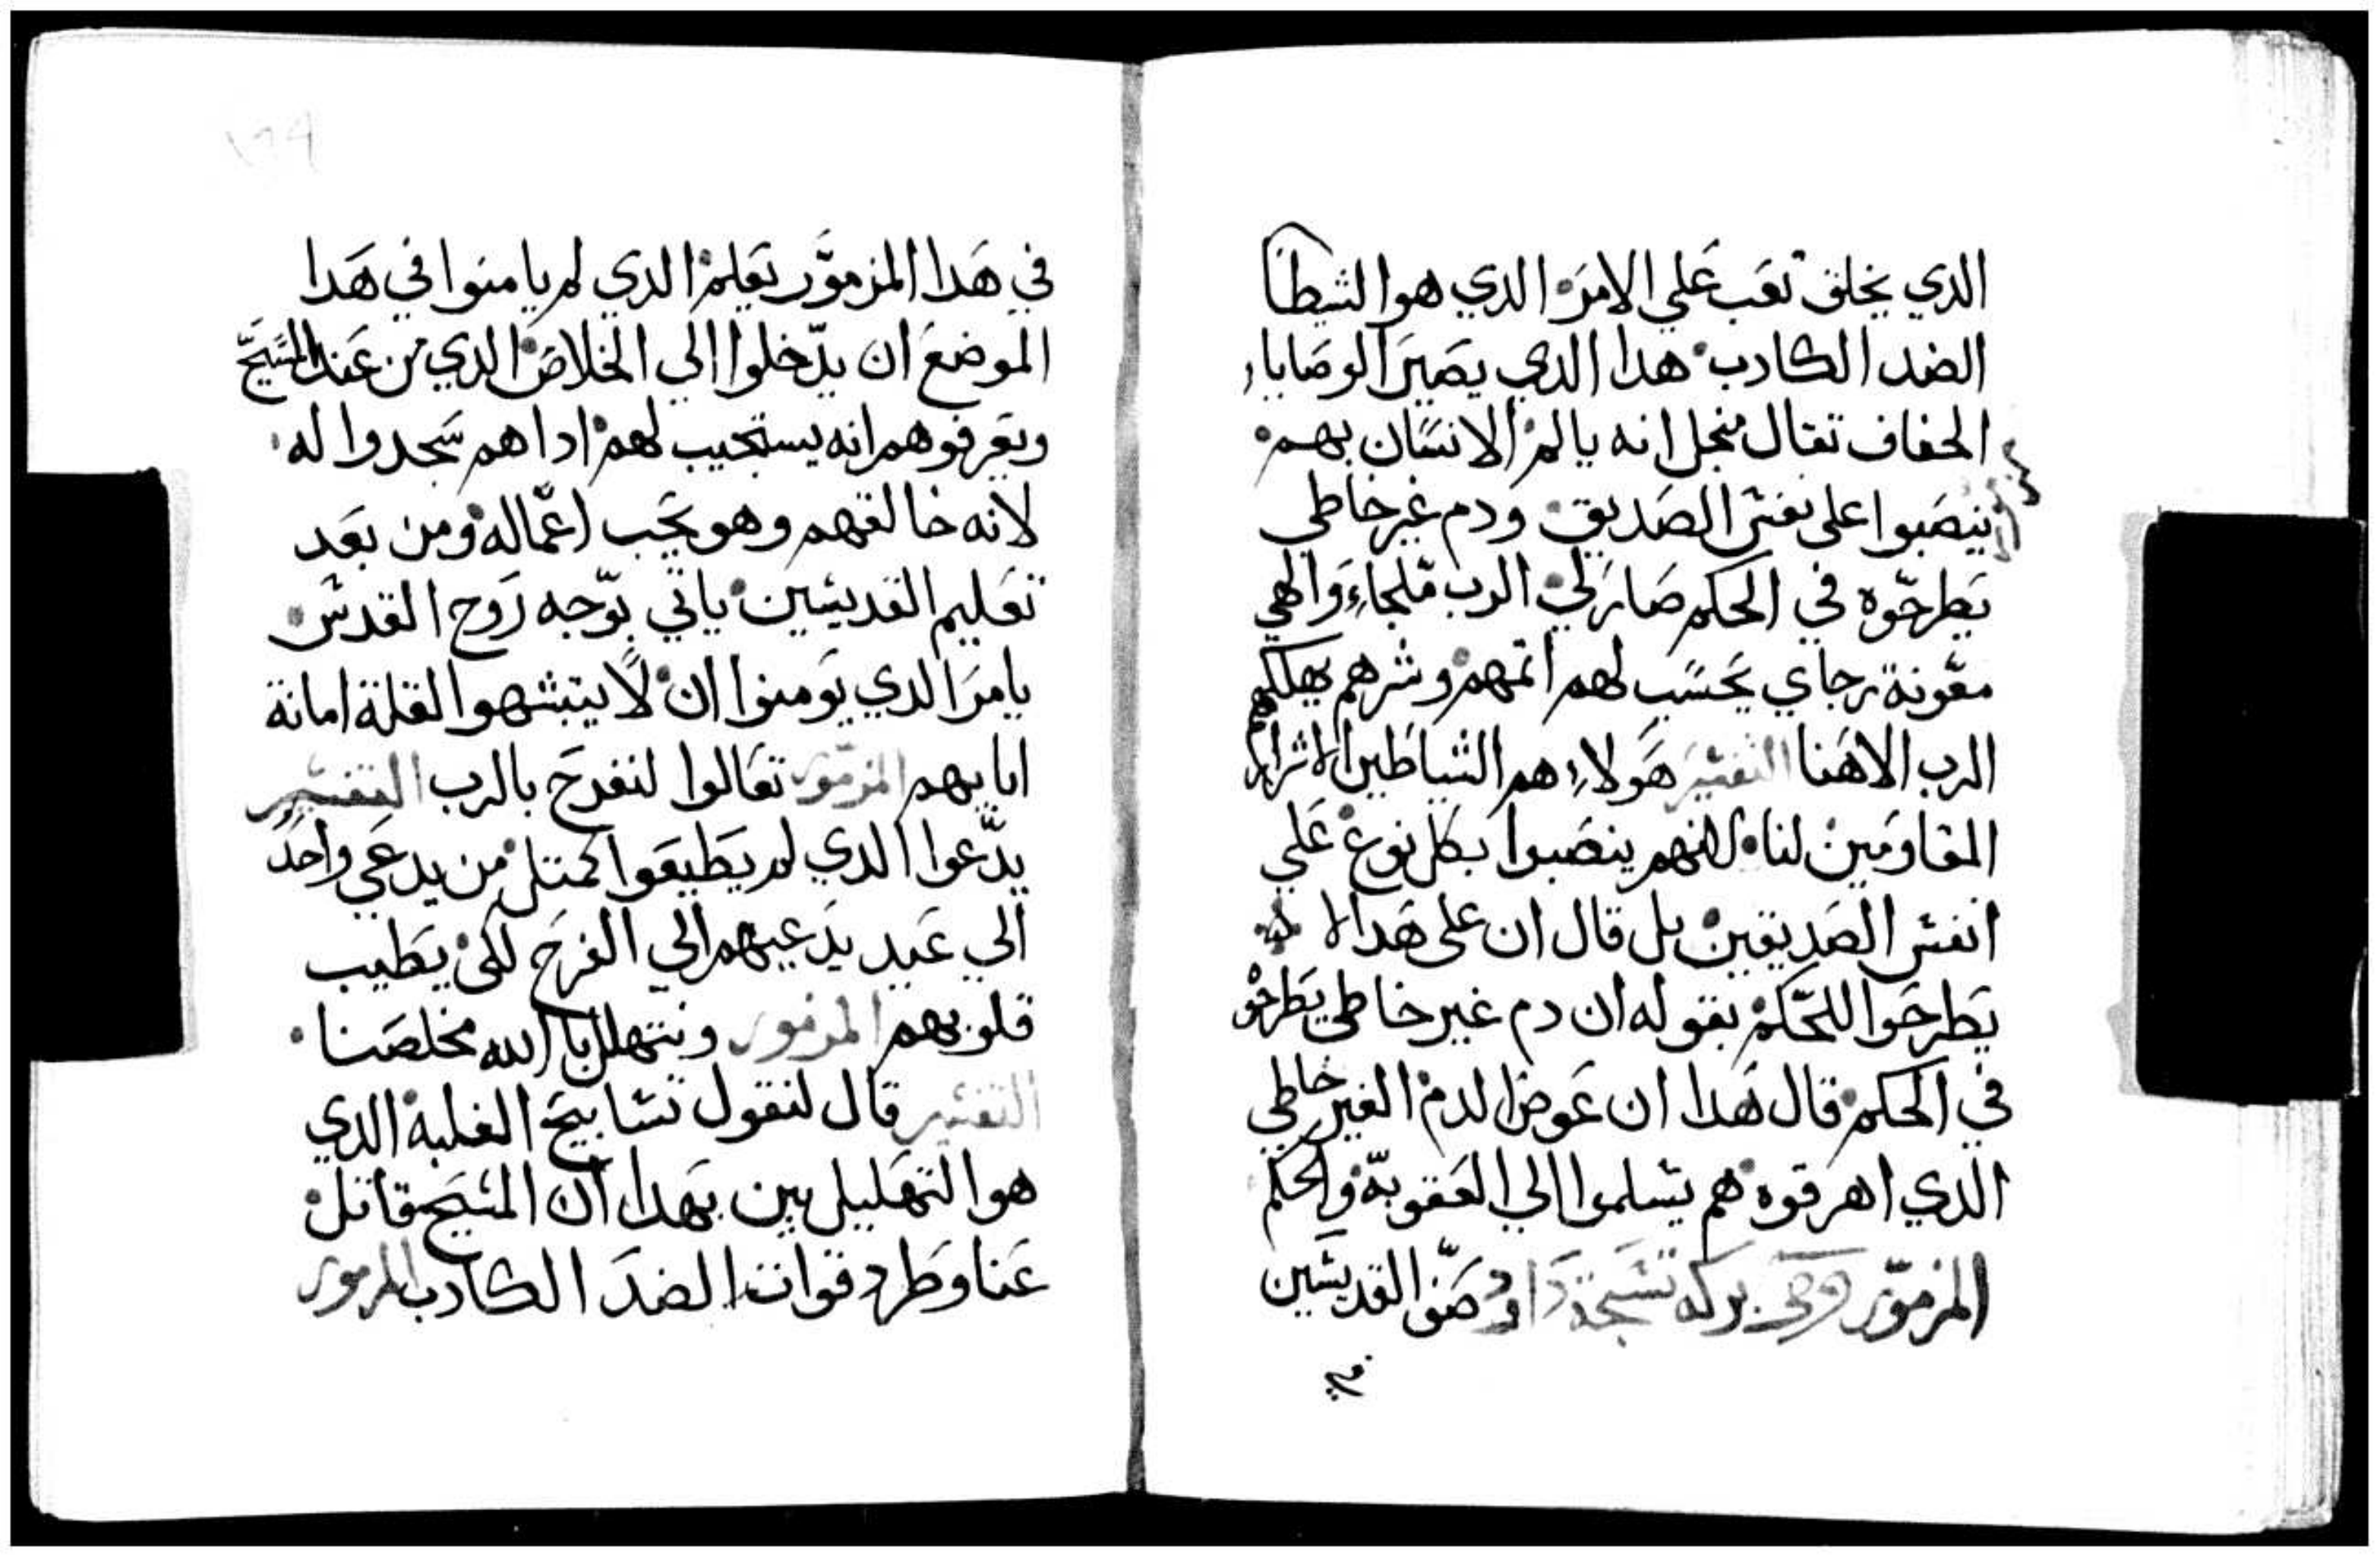 الدي يخلق تعب علي الامر الدي هوا الشيطا
الضد الكادب هدا الدي يصير الوصايا
الحفاف تقال منجل انه يالم الانسان بهم
ينصبوا على نفس الصديق ودم غير خاطي
يطرحوه في الحكم صار لي الرب ملجاء والهي
معونة رجاي يحسب لهم اتمهم وشرهم يهلكهم
الرب الاهنا التفسير هولاء هم الشياطين الاشرار
المقاومين لنا لانهم ينصبوا بكل نوع علي
انفس الصديقين بل قال ان على هدا لا
يطرحوا للحكم بقوله ان دم غير خاطي يطرحو
في الحكم قال هدا ان عوض الدم الغير خاطي
الدي اهرقوه هم يسلموا الي العقوبة والحكم
المزمور بركه تسبحة داود القديسين
في
في هدا المزمور تعلم الدي لم يامنوا في هدا
الموضع ان يدخلوا الي الخلاص الدي من عند المسيح
ويعرفوهم انه يستجيب لهم ادا هم سجدوا له
لانه خالقهم وهو يحب اعماله ومن بعد
تعليم القديسين ياتي بوجه روح القدس
يامر الدي يومنوا ان لا يتشبهوا القلة امانة
ابايهم المزمور تعالوا لنفرح بالرب التفسير
يدعوا الدي لم يطيعوا كمتل من يدعي واحد
الي عيد يدعيهم الي الفرح لكي يطيب
قلوبهم المزمور ونتهلل بالله مخلصنا
التفسير قال لنقول تسابيح الغلبة الدي
هوا التهليل بين بهدا ان المسيح قاتل
عنا وطرد قوات الضد الكادب المزمور